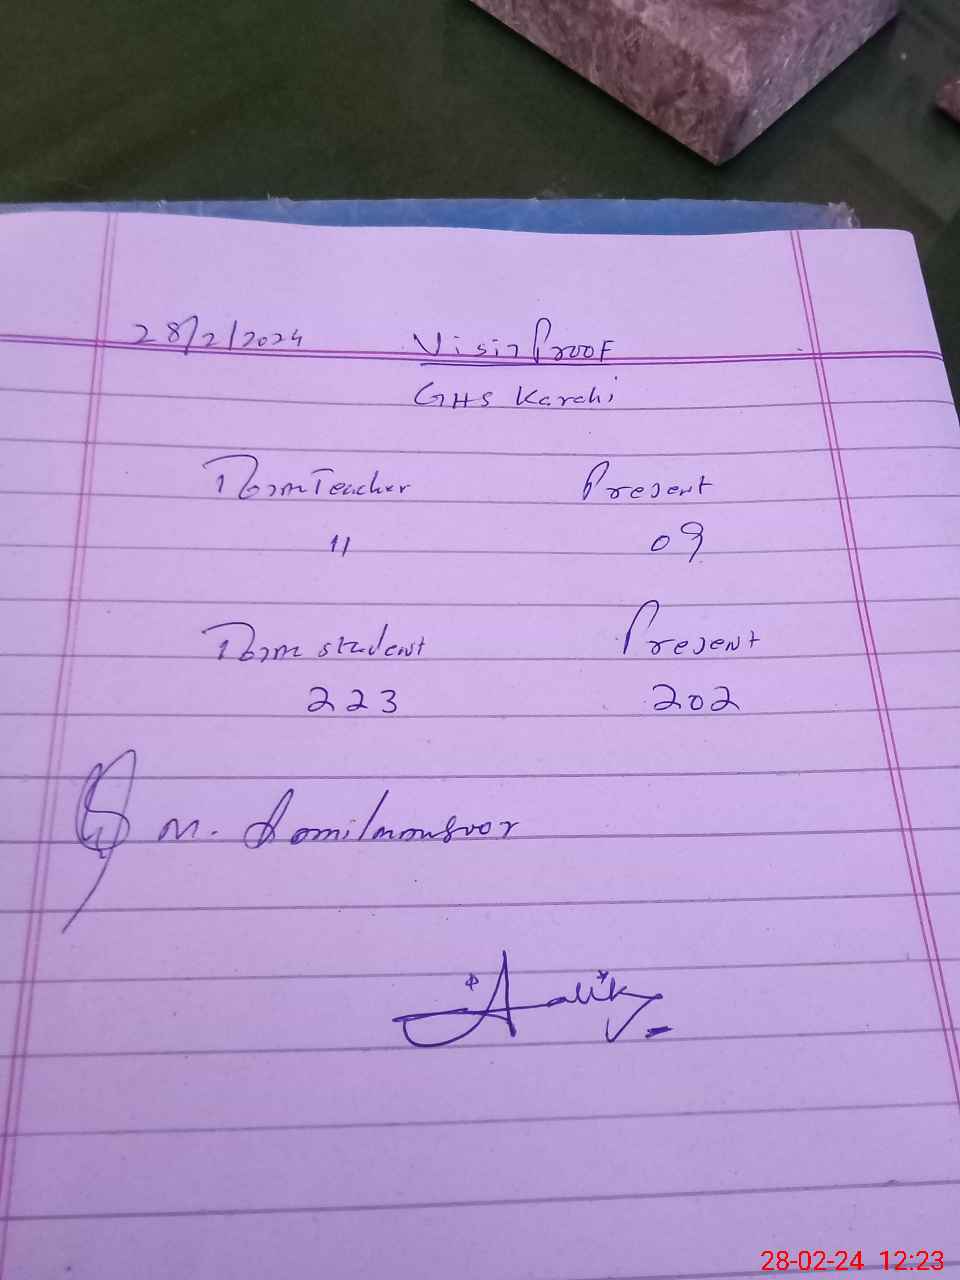 28/2/2024 Visit Proof
GHS Karchi
Teacher Present
11 09
student Present
223 202
M.
28-02-24 12:23